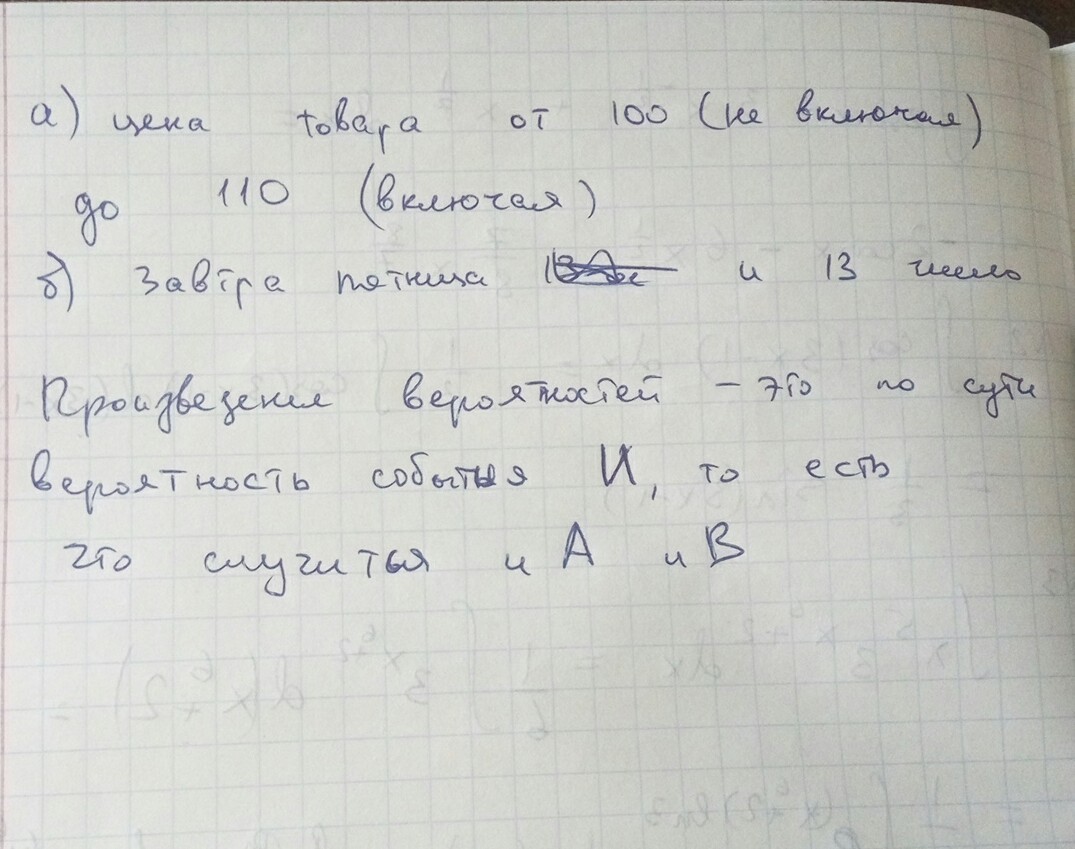 а) цена товара от 100 (не включая)
до 110 (включая)
б) Завтра пятница и 13 число
Произведения вероятностей – это по сути
вероятность события И, то есть
что случиться и А и В